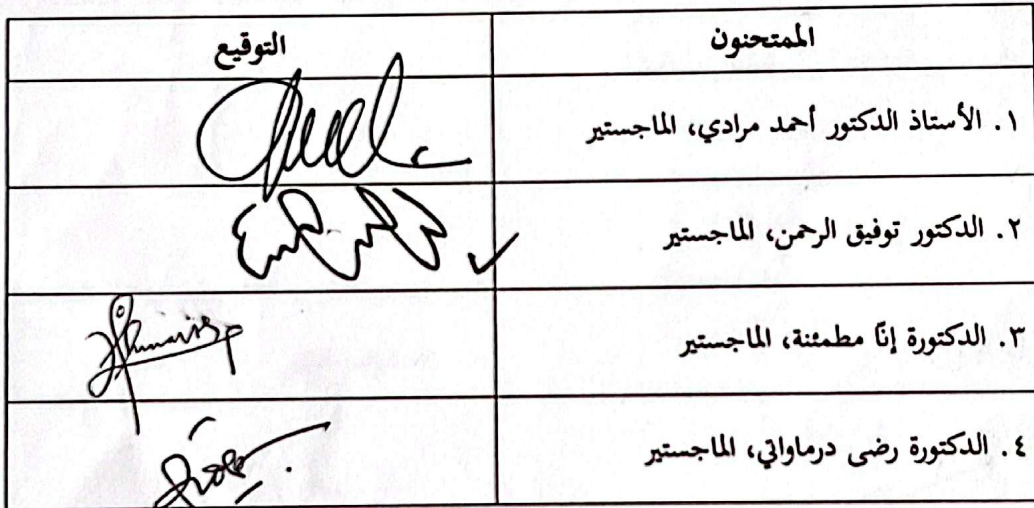 الممتحنون التوقيع
١. الأستاذ الدكتور أحمد مرادي، الماجستير
٢. الدكتور توفيق الرحمن، الماجستير
٣. الدكتورة إنّا مطمئنة، الماجستير
٤. الدكتورة رضى درماواتي، الماجستير